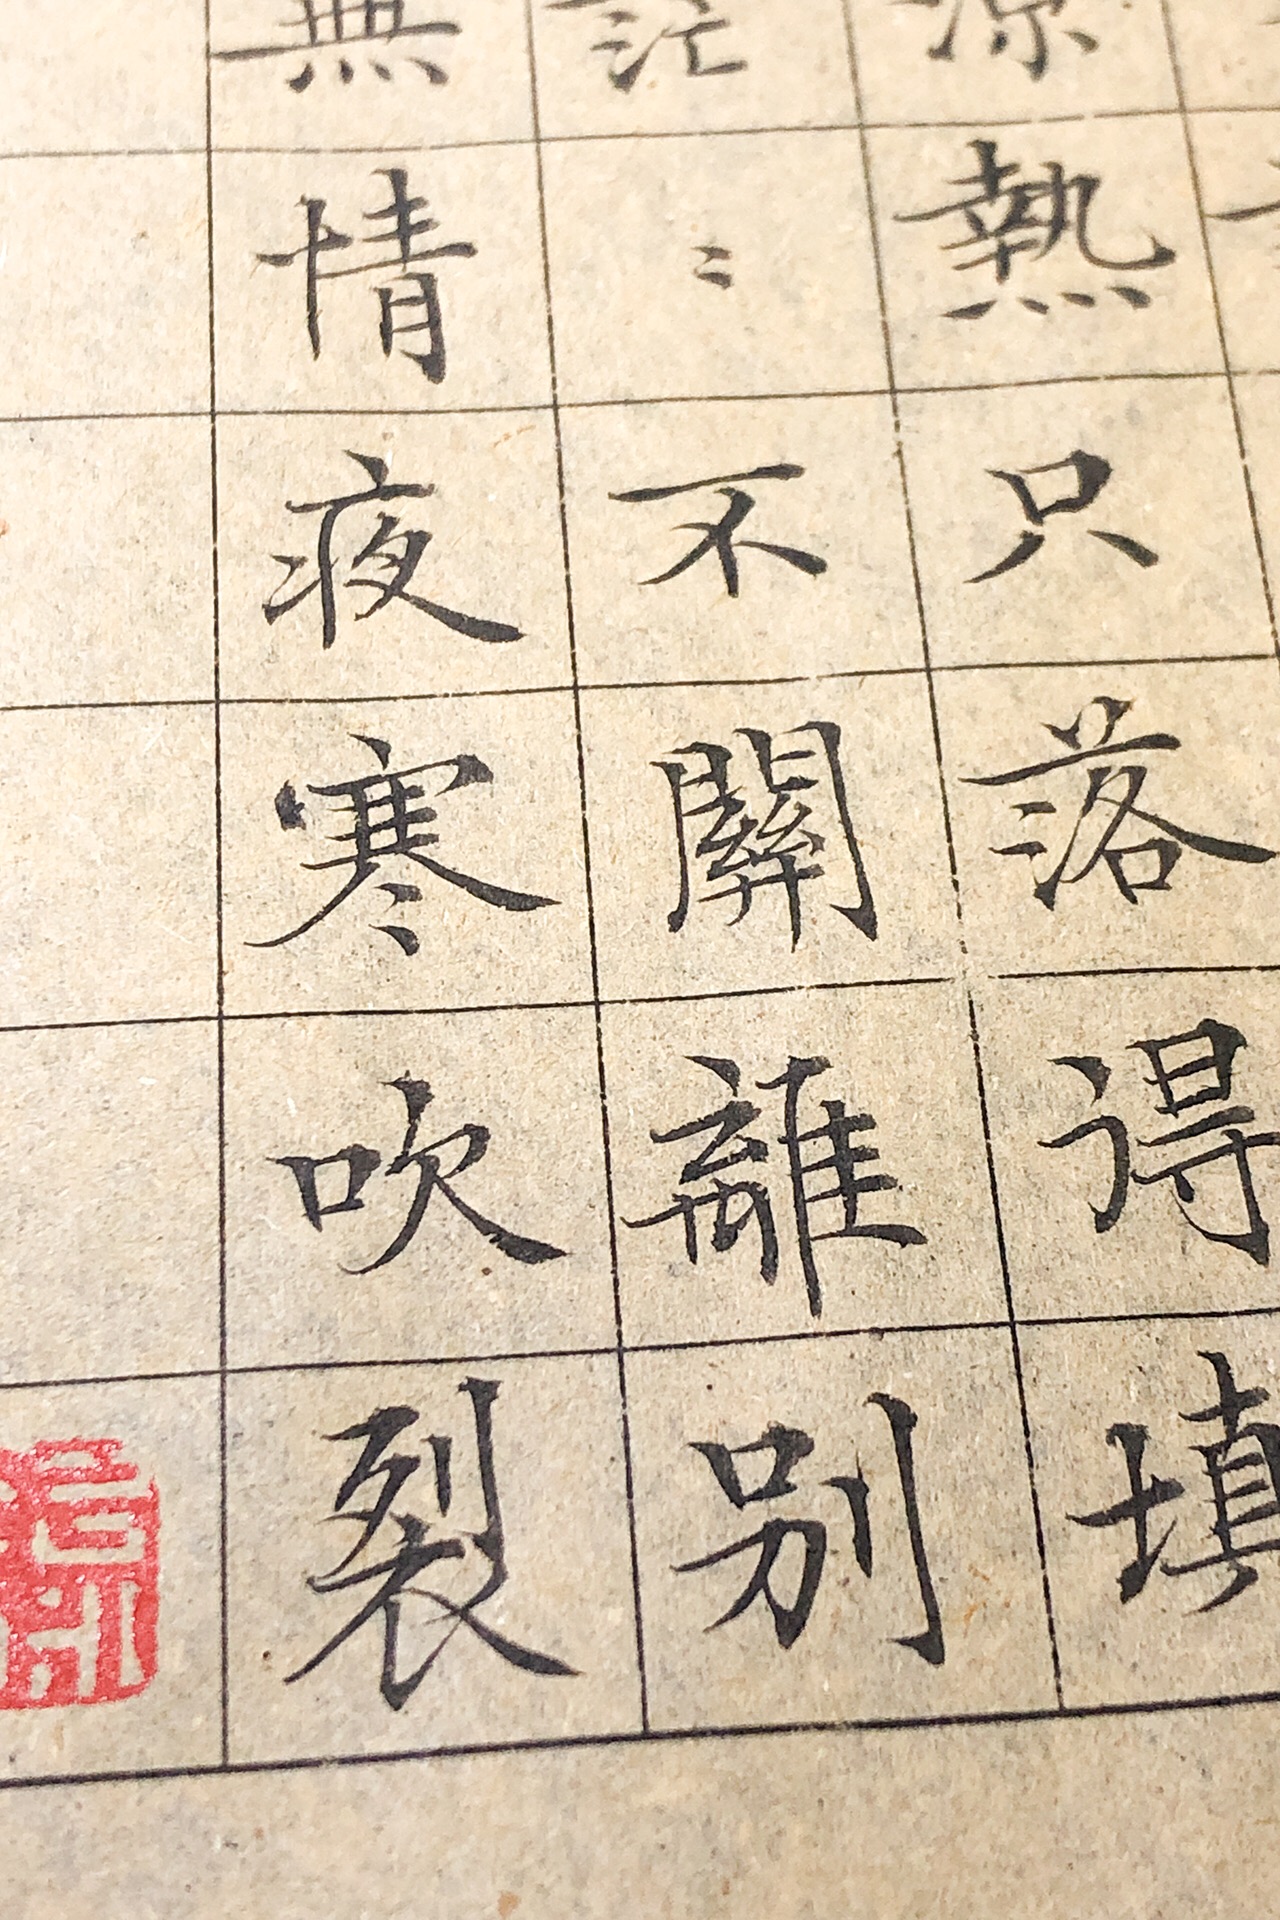 涼熱只落得填
茫〻不關離別
無情夜寒吹裂